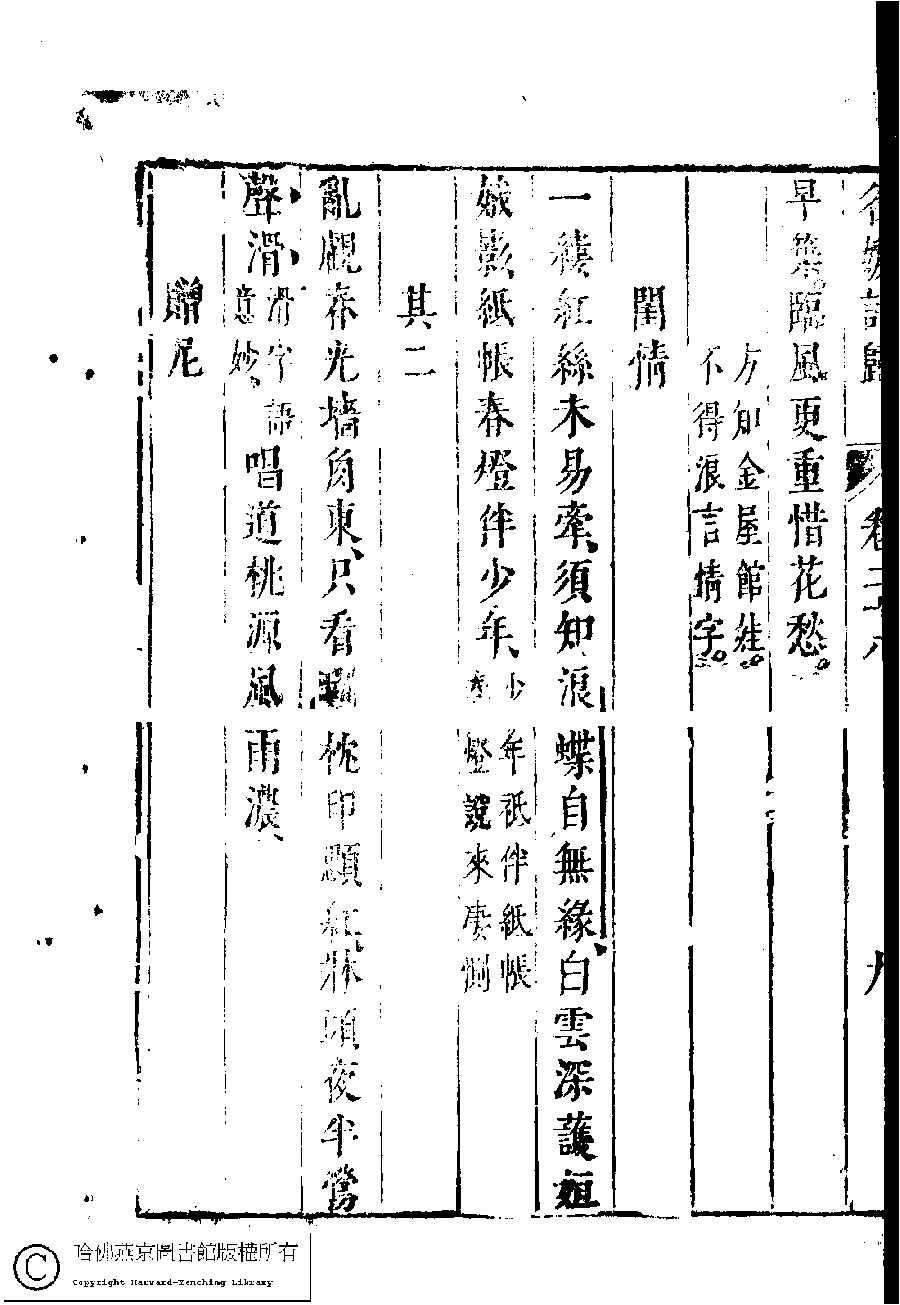 名媛詩歸 卷二十八 九
早榮臨風更重惜花愁
方知金屋館娃
不得浪言情字
閨情
一縷紅絲未易牽須知浪蝶自無緣白雲深護姮
娥影紙帳春燈伴少年
少年祇伴紙帳
春燈說來凄惻
其二
亂覷春光墻角東只看 枕印顋紅牀頭夜半鶯
聲滑
滑字語
意妙
唱道桃源風雨濃
贈尼
哈佛燕京圖書館版權所有
Copyright Harvard-Yenching Library